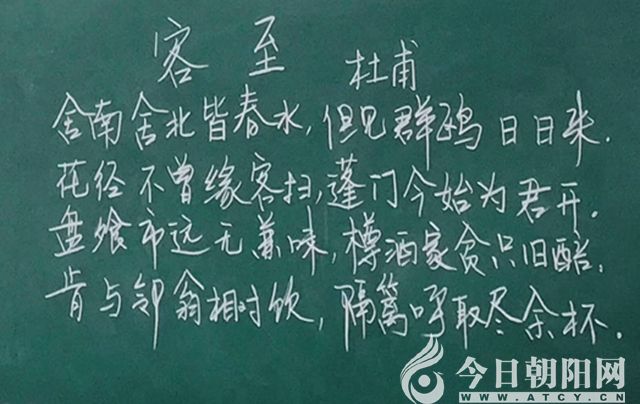 客至
杜甫
舍南舍北皆春水,但见群鸥日日来.
花径不曾缘客扫,蓬门今始为君开.
盘飧市远无兼味,樽酒家贫只旧醅.
肯与邻翁相对饮,隔篱呼取尽余杯.
今日朝阳网
WWW.ATCY.CN